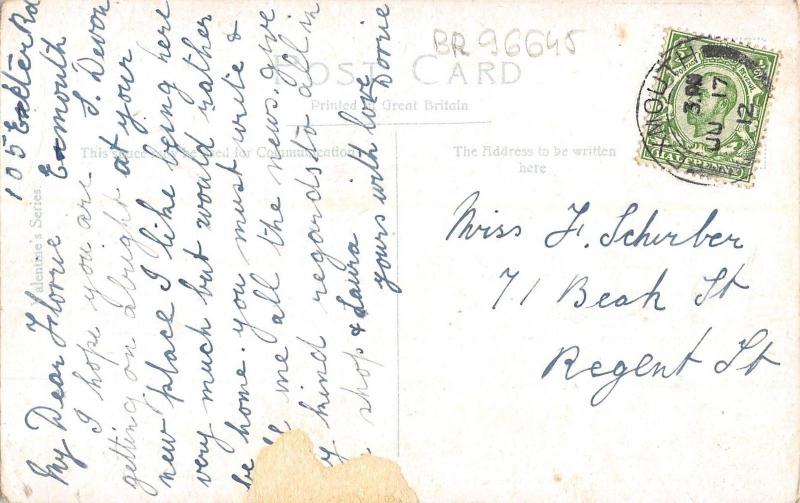 BR 96645
POST CARD
Printed in Great Britain
This space may be used for Communication
The Address to be written
here
Valentine's Series
EXMOUTH
3. PM
JU 17
12
105 Exeter Rd
Exmouth
S. Devon
My Dear Florrie
I hope you are
getting on alright at your
new place I like being here
very much but would rather
be home. you must write &
me all the news. give
kind regards to all in
shop & Laura
yours with love Dorie
Miss F. Scherber
71 Beak St
Regent St